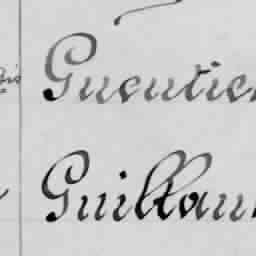 Gucutie
Guillau